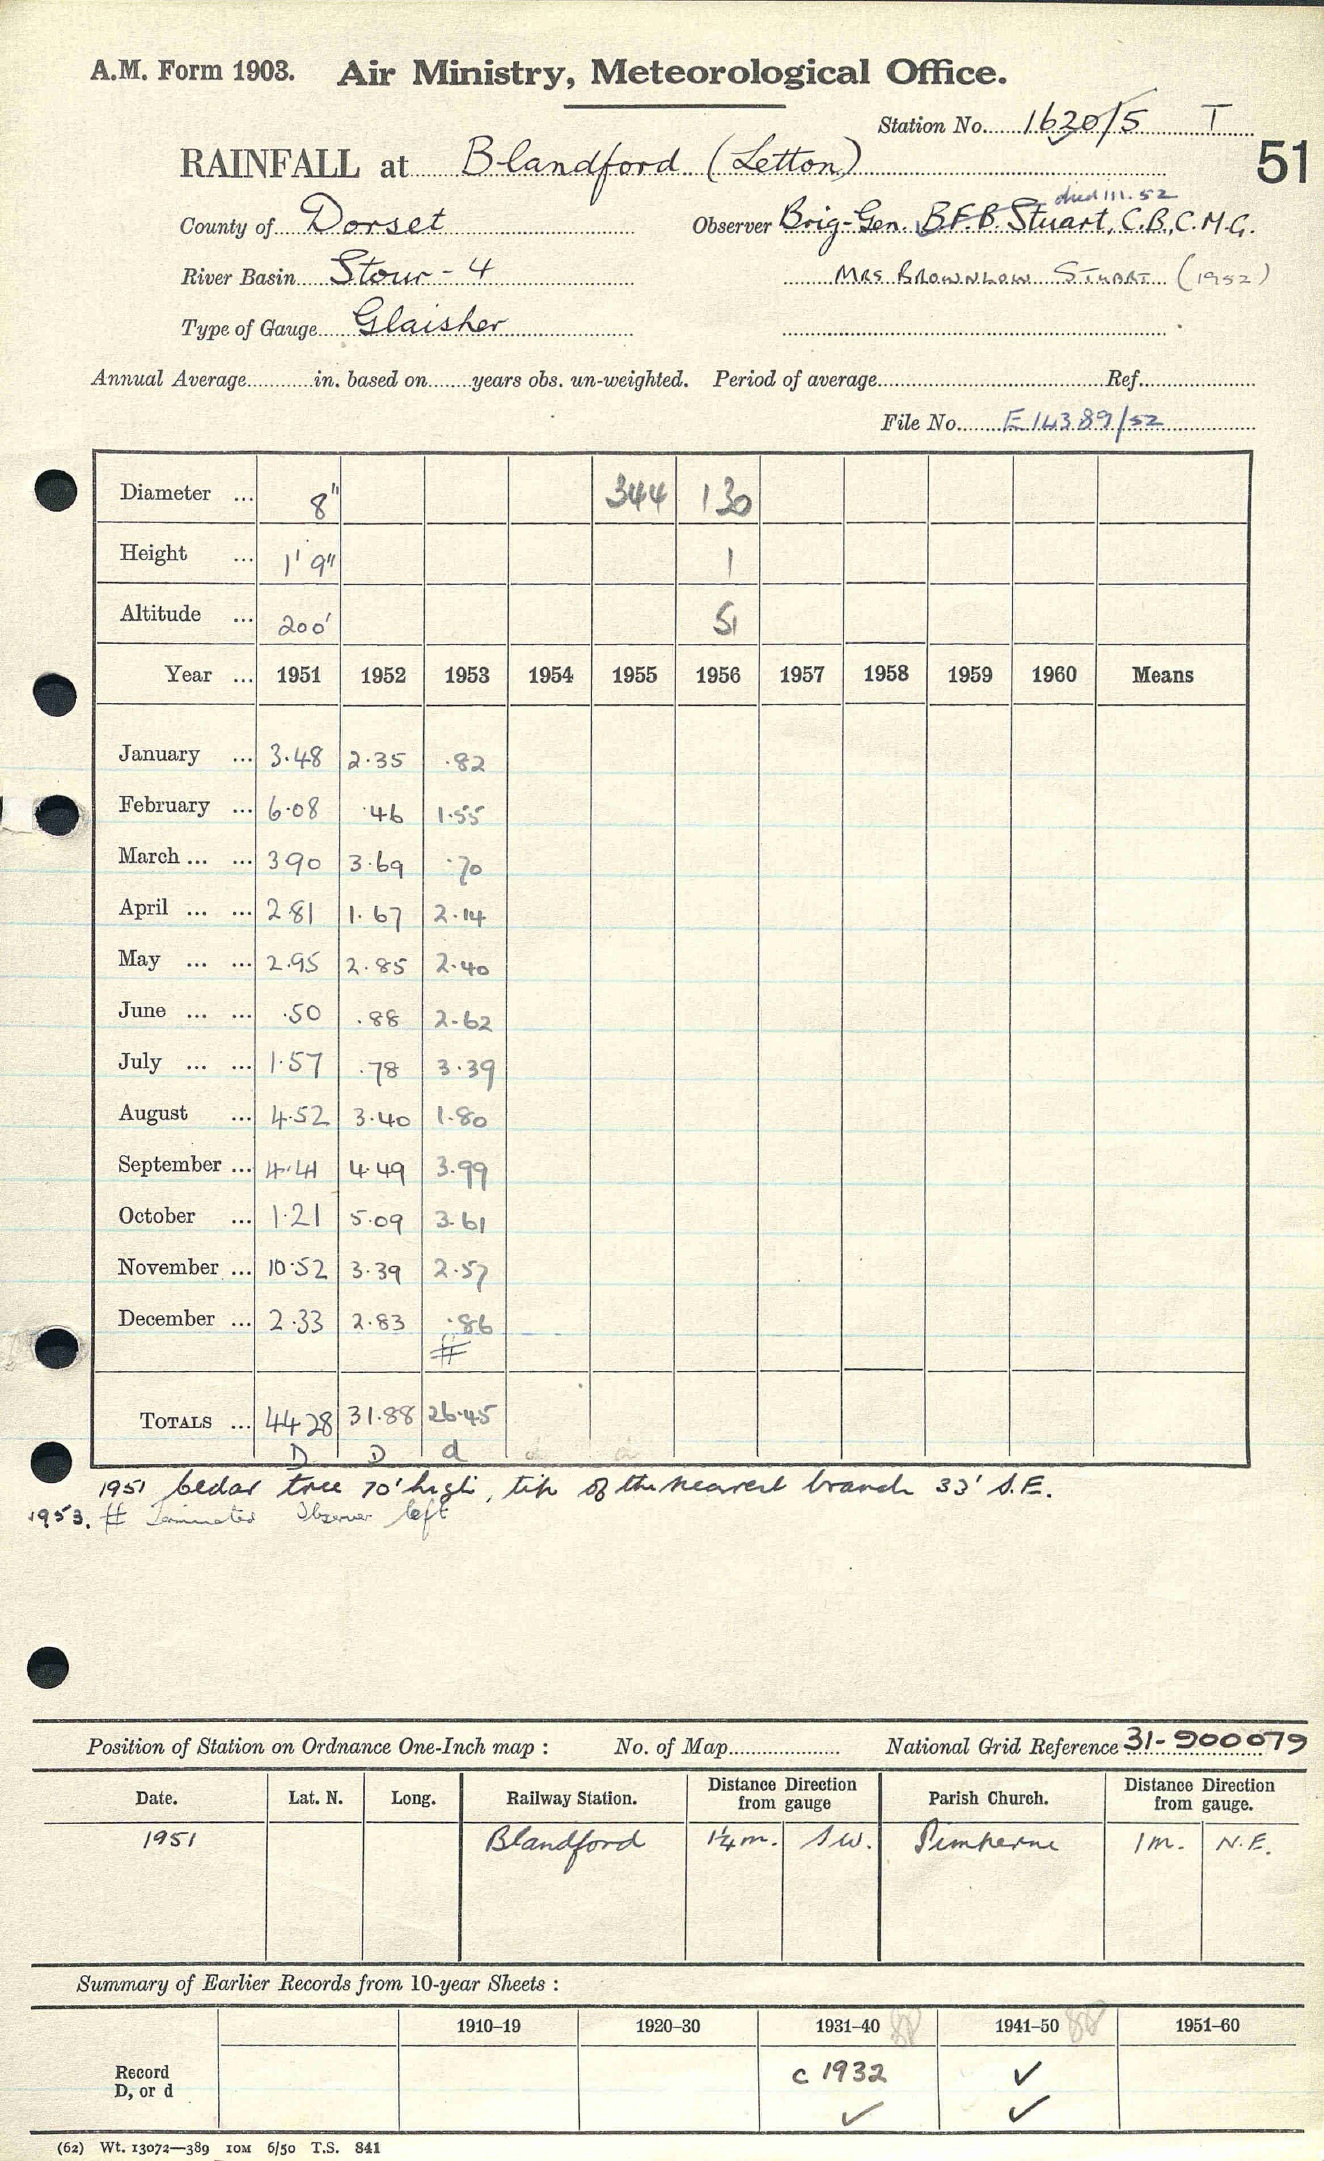 A.M. Form 1903. Air Ministry, Meteorological Office.
Station No. 1620/5 T
51
RAINFALL at Blandford (Letton)
died 111.52
County of Dorset Observer Brig-Gen. B.F.B. Stuart, C.B., C.M.G.
River Basin Stour - 4 MRS BROWNLOW STUART (1952)
Type of Gauge Glaisher
Annual Average in. based on years obs. un-weighted. Period of average Ref.
File No. E14389/52
Diameter ... 8" 344 130
Height ... 1' 9" 1
Altitude ... 200' 51
Year ... 1951 1952 1953 1954 1955 1956 1957 1958 1959 1960 Means
January ... 3.48 2.35 .82
February ... 6.08 .46 1.55
March ... ... 3 90 3.69 .70
April ... ... 2.81 1.67 2.14
May ... ... 2.95 2.85 2.40
June ... ... .50 .88 2.62
July ... ... 1.57 .78 3.39
August ... 4.52 3.40 1.80
September ... 4.41 4.49 3.99
October ... 1.21 5.09 3.61
November ... 10.52 3.39 2.57
December ... 2.33 2.83 .86
#
TOTALS ... 44 28 31.88 26.45
D D d
1951 Cedar tree 70' high, tip of the nearest branch 33' S.E.
1953. # Terminated Observer left
Position of Station on Ordnance One-Inch map : No. of Map National Grid Reference 31-900079
Date. Lat. N. Long. Railway Station. Distance Direction from gauge Parish Church. Distance Direction from gauge.
1951 Blandford 1¼m. S.W. Pimperne 1m. N.E.
Summary of Earlier Records from 10-year Sheets :
1910–19 1920–30 1931–40 1941–50 1951–60
Record D, or d c 1932 ✓
✓ ✓
(62) Wt. 13072—389 10M 6/50 T.S. 841